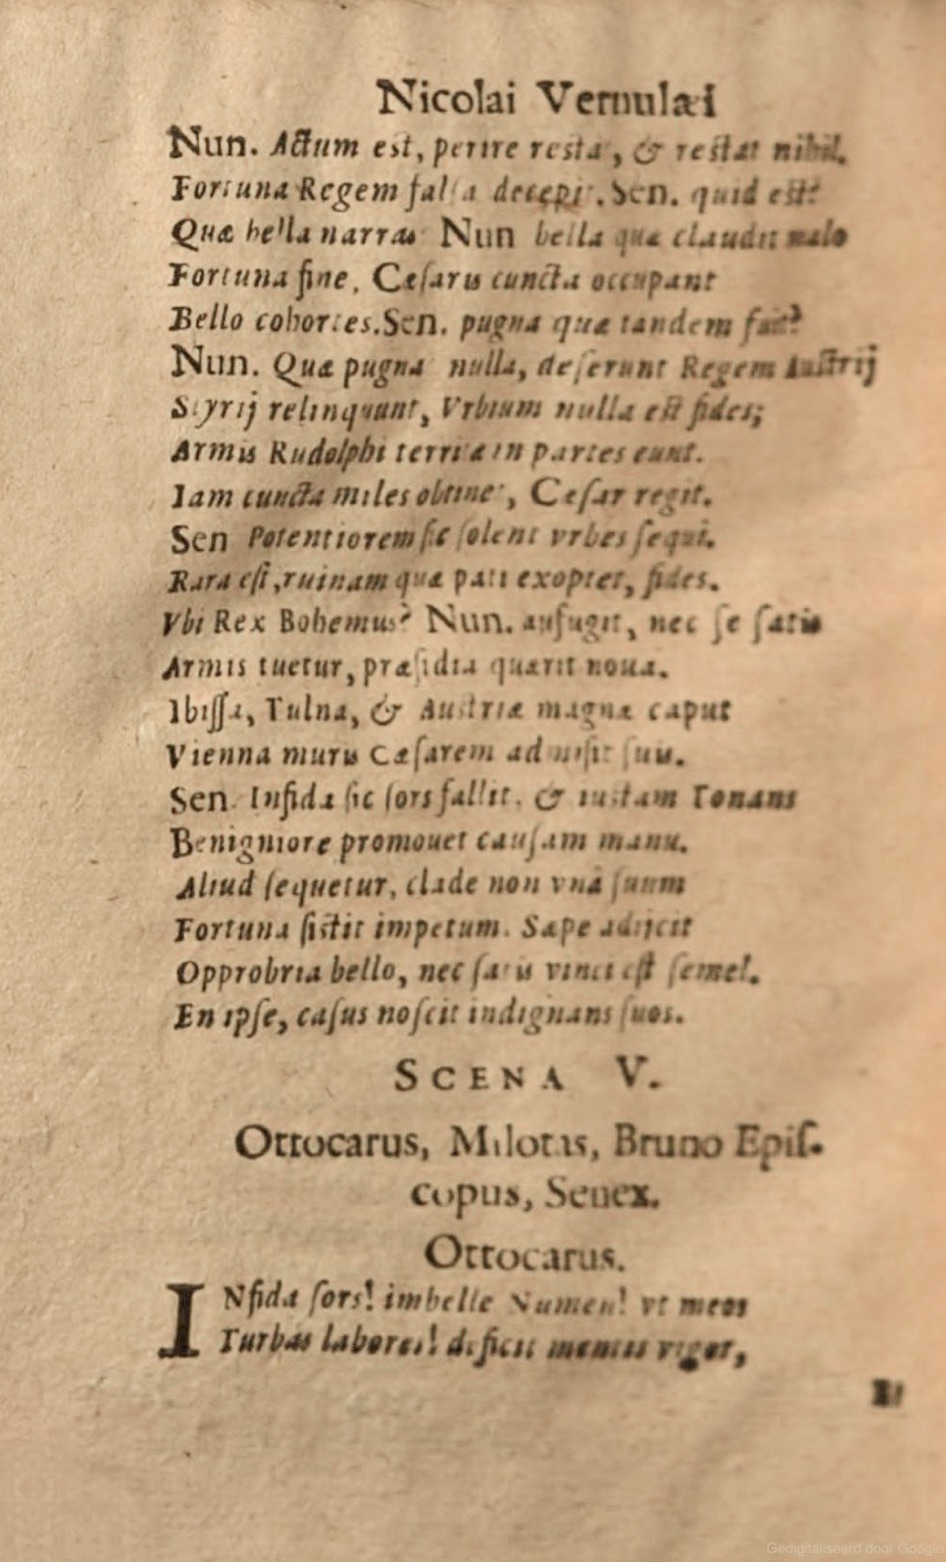 Nicolai Vernulæi
Nun. Actum est, perire resta, & restat nihil.
Fortuna Regem falsa decepit. Sen. quid est?
Quæ bella narras Nun bella quæ claudit malo
Fortuna fine, Cæsaris cuncta occupant
Bello cohortes. Sen. pugna quæ tandem fuit?
Nun. Quæ pugna nulla, deserunt Regem Austrij
Styrij relinquunt, Vrbium nulla est fides;
Armis Rudolphi territæ in partes eunt.
Iam cuncta miles obtinet, Cesar regit.
Sen Potentiorem sic solent vrbes sequi.
Rara est, ruinam quæ pati exoptet, fides.
Vbi Rex Bohemus? Nun. aufugit, nec se satis
Armis tuetur, præsidia quærit noua.
Ibissa, Tulna, & Austriæ magnæ caput
Vienna muris Cæsarem admisit suis.
Sen. Infida sic sors fallit, & iustam Tonans
Benigniore promouet causam manu.
Aliud sequetur, clade non vná suum
Fortuna sistit impetum. Sæpe adijcit
Opprobria bello, nec satis vinci est semel.
En ipse, casus noscit indignans suos.
SCENA V.
Ottocarus, Milotas, Bruno Epis-
copus, Senex.
Ottocarus.
INfida sors! imbelle Numen! vt meos
Turbas labores! deficit mentis vigor,